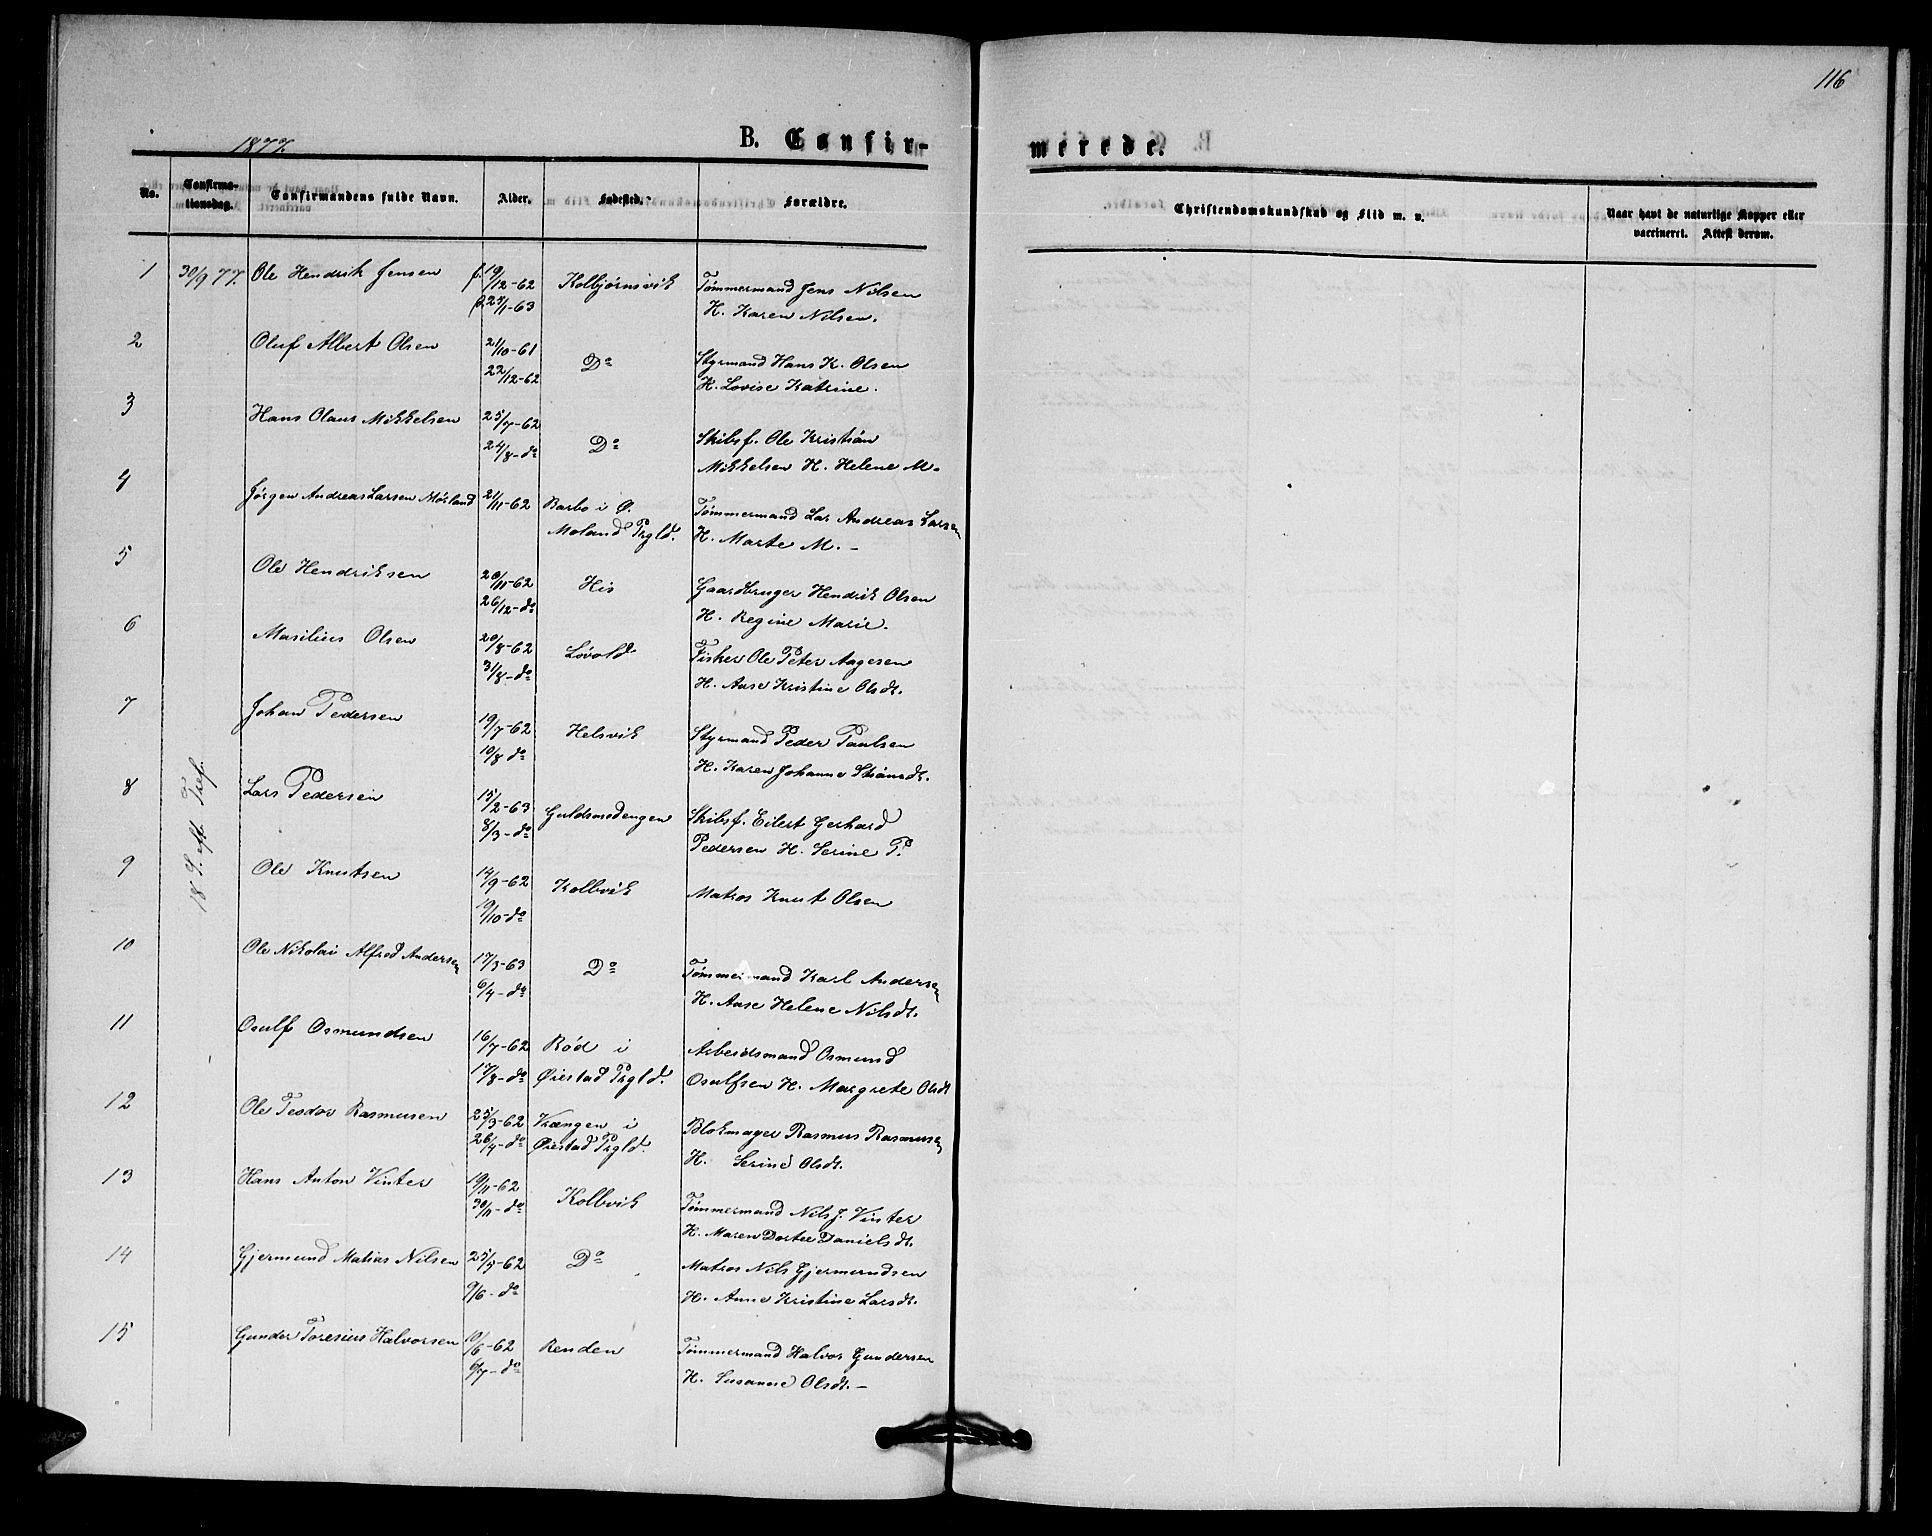 116
1877.
B. Confir-
merede.
No.
Confirma-
tionsdag.
Confirmandens fulde Navn.
Alder.
Fødested.
Forældre.
Christendomskundskab og Flid m. v.
Naar havt de naturlige Kopper eller
vaccineret. Attest derom.
1 30/9 77. Ole Hendrik Jensen f. 19/12-62 Kolbjørnsvik Tømmermand Jens Nilsen
-63 H. Karen Nilsen.
2 Oluf Albert Olsen 21/10-61 Do Styrmand Hans K. Olsen
22/12-62 H. Lovise Katrine.
3 Hans Olaus Mikkelsen 25/7-62 Do Skibsf. Ole Kristian
24/8-do Mikkelsen H. Helene M.
4 Jørgen Andreas Larsen Mørland 21/11-62 Barbo i Ø. Tømmermand Lar Andreas Larsen
Moland Prgld. H. Marte M. -
5 Ole Hendriksen 20/11-62 His Gaardbruger Hendrik Olsen
26/12-do H. Regine Marie.
6 Masilius Olsen 20/8-62 Løvold Fisker Ole Peter Aagesen
31/8-do H. Aase Kristine Olsdt.
7 Johan Pedersen 19/7-62 Helsvik Styrmand Peder Paulsen
10/8 do H. Karen Johanne
18 S. eft. Tref.
8 Lars Pedersen 15/2-63 Guldsmedengen Skibsf. Eilert Gerhard
8/3-do Pedersen H. Serine P.
9 Ole Knutsen 14/9-62 Kolbvik Matros Knut Olsen
19/10-do
10 Ole Nikolai Alfred Andersen 17/3-63 Do Tømmermand Karl Andersen
6/4-do H. Aase Helene Nilsdt.
11 Osulf Osmundsen 16/7-62 Rød i Arbeidsmand Osmund
17/8-do Øiestad Prgld. Osulfsen H. Margrete Olsdt
12 Ole Teodor Rasmusen 25/3-62 Vrængen i Blokmager Rasmus Rasmusen
26/4-do Øiestad Prgld. H. Serine Olsdt.
13 Hans Anton Vinter 19/11-62 Kolbvik Tømmermand Nils J. Vinter
30/11-do H. Maren Dortee Danielsdt.
14 Gjermund Matias Nilsen 25/5-62 Do Matros Nils Gjermundsen
9/6-do H. Anne Kristine Larsdt.
15 Gunder Toresius Halvorsen 10/6-62 Renden Tømmermand Halvor Gundersen
6/7-do H. Susanne Olsdt. -